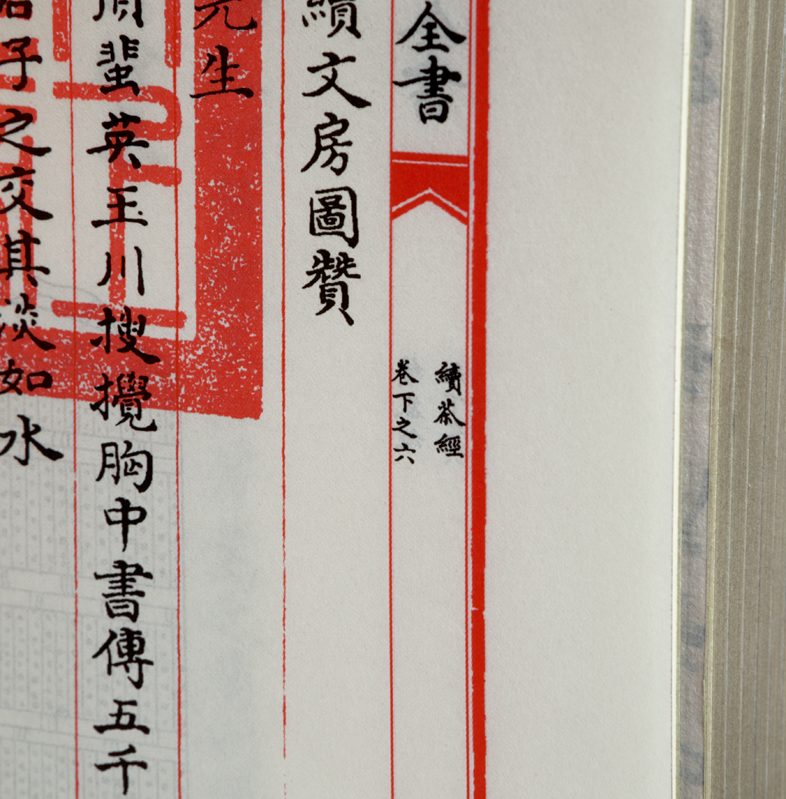 全書
續茶經
卷下之六
續文房圖贊
先生
頂蜚英玉川搜攪胸中書傳五千
君子之交其淡如水